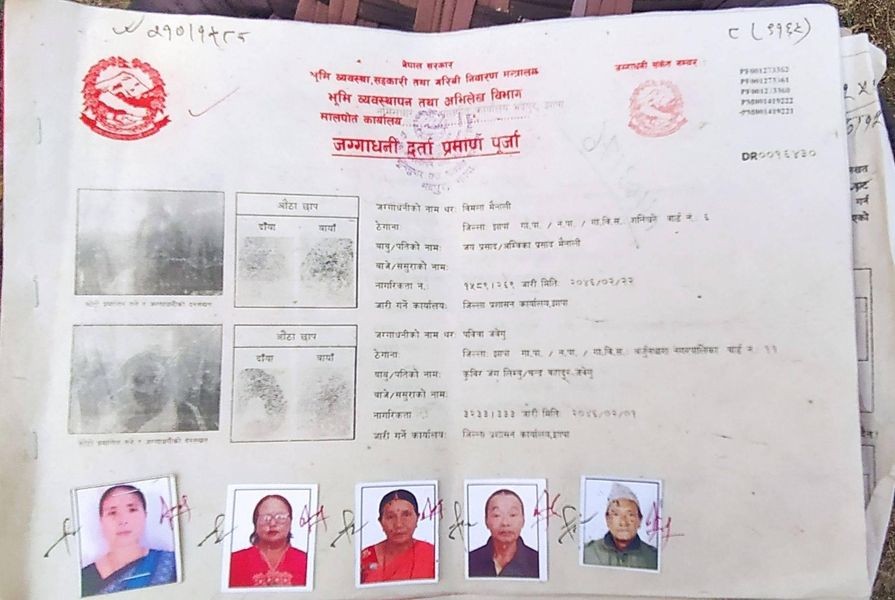 ८ (११६९
नेपाल सरकार
भूमि व्यवस्था, सहकारी तथा गरिबी निवारण मन्त्रालय
भूमि व्यवस्थापन तथा अभिलेख विभाग
मालपोत कार्यालय
जग्गाधनी दर्ता प्रमाण पूर्जा
जग्गाधनी संकेत नम्बर:
PF001273362
PF001273361
PF001273360
PM001419222
PM001419221
DR००१६४३०
औंठा छाप
दाँया बायाँ
जग्गाधनीको नाम थर: बिमला मैनाली
ठेगाना: जिल्ला झापा गा.पा. / न.पा. / गा.वि.स. शनिश्चरे वार्ड नं. ६
बाबु/पतिको नाम: जय प्रसाद/अम्बिका प्रसाद मैनाली
बाजे/ससुराको नाम:
नागरिकता नं.: १५८९।२६९ जारी मिति: २०४६/०२/२२
जारी गर्ने कार्यालय: जिल्ला प्रशासन कार्यालय,झापा
औंठा छाप
दाँया बायाँ
जग्गाधनीको नाम थर: पवित्रा जबेगु
ठेगाना: जिल्ला झापा गा.पा. / न.पा. / गा.वि.स. नगरपालिका वार्ड नं. ११
बाबु/पतिको नाम: कुविर जंग लिम्बु/चन्द्र बहादुर जबेगु
बाजे/ससुराको नाम:
नागरिकता ३२३३।३३३ जारी मिति: २०४६/०२/०१
जारी गर्ने कार्यालय: जिल्ला प्रशासन कार्यालय,झापा